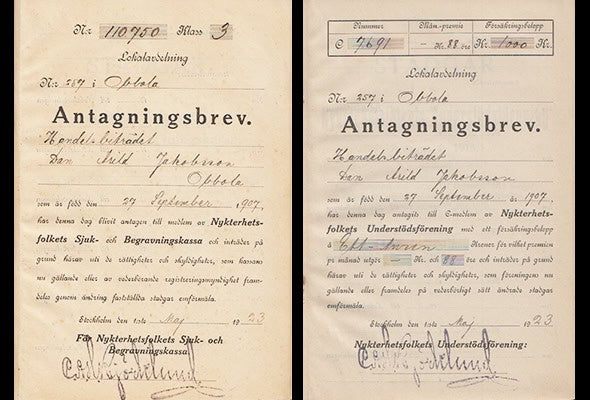 N:r 110750 Klass 3
Lokalavdelning
N:r 257 i Obbola
Antagningsbrev.
Handelsbiträdet
Dan Arild Jakobsson
Obbola
som är född den 27 September 1907,
har denna dag blivit antagen till medlem av Nykterhets-
folkets Sjuk- och Begravningskassa och inträder på
grund härav uti de rättigheter och skyldigheter, som kassans
nu gällande eller av vederbörande registeringsmyndighet fram-
deles genom ändring fastställda stadgar emförmäla.
Stockholm den 1sta Maj 1923
För Nykterhetsfolkets Sjuk- och
Begravningskassa
Nummer Mån.-premie Försäkringsbelopp
C 7691 — Kr. 88 öre Kr. 1000 Kr.
Lokalavdelning
N:r 257 i Obbola
Antagningsbrev.
Handelsbiträdet
Dan Arild Jakobsson
som är född den 27 September år 1907,
har denna dag antagits till C-medlem av Nykterhets-
folkets Understödsförening med ett försäkringsbelopp
å Ett-tusen Kronor för vilket premien
pr månad utgör — Kr. och 88 öre och inträder på grund
härav uti de rättigheter och skyldigheter, som föreningens nu
gällande eller framdeles på vederbörligt sätt ändrade stadgar
emförmäla.
Stockholm den 1sta Maj 1923.
Nykterhetsfolkets Understödsförening: